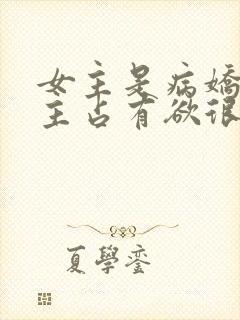 女主是病嬌
主占有欲很
夏學鑾